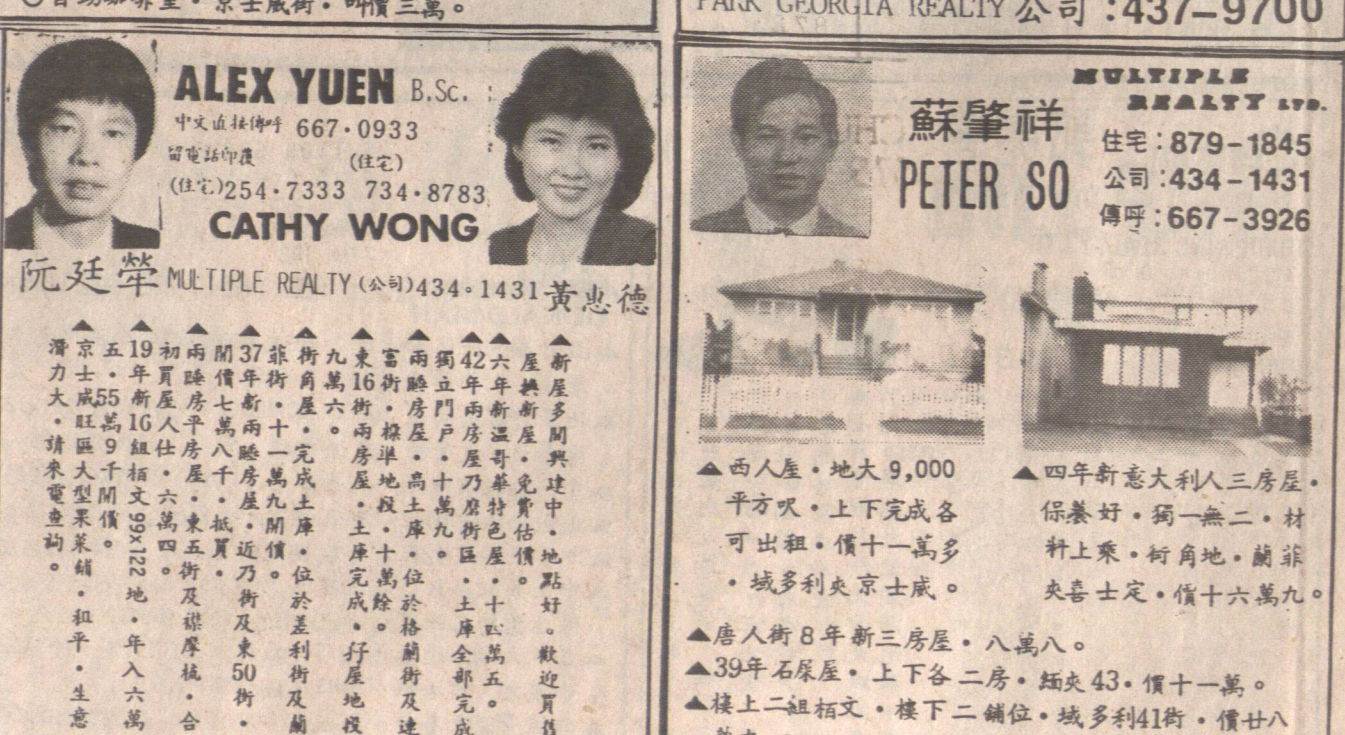 自助咖啡室・京士威街・叫價三萬。
PARK GEORGIA REALTY 公司:437-9700
ALEX YUEN B.Sc.
中文直接傳呼 667・0933
留電話即覆
(住宅)
(住宅)254・7333 734・8783
CATHY WONG
阮廷犖 MULTIPLE REALTY (公司)434・1431 黃惠德
▲新屋多間興建中・地點好。歡迎買舊
屋換新屋・免費估價。
▲六年新溫哥華特色屋・十四萬五。
▲42年兩房屋乃磨街區・土庫全部完成
獨立門戶・十萬九。
▲兩睡房屋・高土庫・位於格蘭街及連
富街・標準地段・十萬餘。
▲東16街・兩房屋・土庫完成・孖屋地段
九萬六。
▲街角屋・完成土庫・位於差利街及蘭
菲街・十一萬九開價。
▲37年新兩睡房屋・近乃街及東50街・
開價七萬八千・抵買。
▲兩睡房平房屋・東五街及襟摩梳・合
初買屋人仕・六萬四。
▲19年新16組栢文99x122地・年入六萬
五・55萬9千開價。
▲京士威旺區大型果菜鋪・租平・生意
潛力大・請來電查詢。
MULTIPLE
REALTY LTD.
蘇肇祥
PETER SO
住宅:879-1845
公司:434-1431
傳呼:667-3926
▲西人屋・地大9,000
平方呎・上下完成各
可出租・價十一萬多
・域多利夾京士威。
▲四年新意大利人三房屋・
保養好・獨一無二・材
料上乘・街角地・蘭菲
夾喜士定・價十六萬九。
▲唐人街8年新三房屋・八萬八。
▲39年石屎屋・上下各二房・緬夾43・價十一萬。
▲樓上二組栢文・樓下二鋪位・域多利41街・價廿八